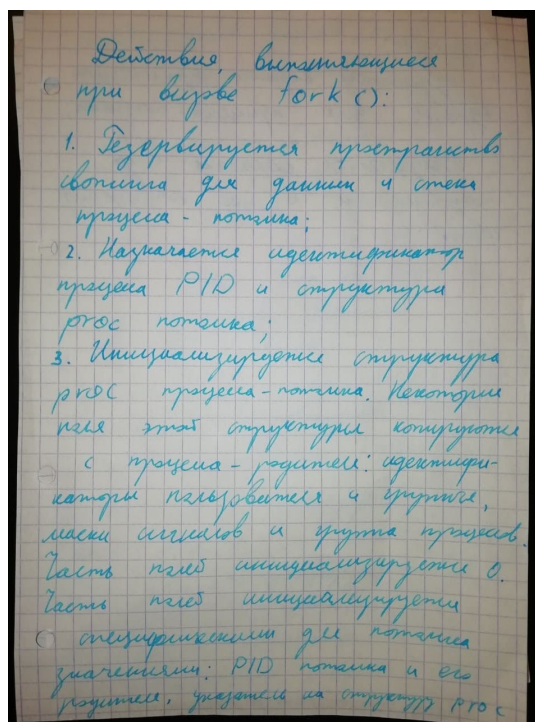 Действия, выполняющиеся
при вызове fork():
1. Резервируется пространство
свопинга для данных и стека
процесса - потомка;
2. Назначается идентификатор
процесса PID и структура
proc потомка;
3. Инициализируется структура
proc процесса-потомка. Некоторые
поля этой структуры копируются
с процесса-родителя: идентифи-
каторы пользователя и группы,
маски сигналов и группа процессов.
Часть полей инициализируется 0.
Часть полей инициализируется
специфическими для потомка
значениями: PID потомка и его
родителя, указатель на структуру proc